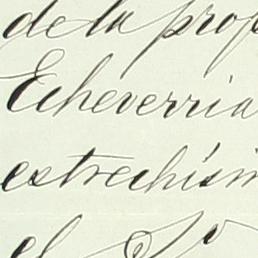 de la prop
Echeverria
estrechísim
el S